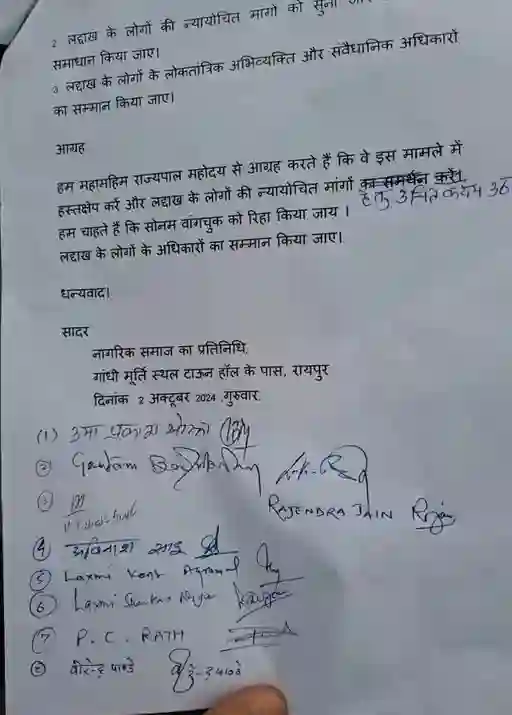 2 लद्दाख के लोगों की न्यायोचित मांगों को सुना
समाधान किया जाए।
3 लद्दाख के लोगों के लोकतांत्रिक अभिव्यक्ति और संवैधानिक अधिकारों
का सम्मान किया जाए।
आग्रह
हम महामहिम राज्यपाल महोदय से आग्रह करते हैं कि वे इस मामले में
हस्तक्षेप करें और लद्दाख के लोगों की न्यायोचित मांगों का समर्थन करें।
हेतु उचित कदम उठ
हम चाहते हैं कि सोनम वांगचुक को रिहा किया जाय ।
लद्दाख के लोगों के अधिकारों का सम्मान किया जाए।
धन्यवाद।
सादर
नागरिक समाज का प्रतिनिधि,
गांधी मूर्ति स्थल टाऊन हॉल के पास, रायपुर
दिनांक 2 अक्टूबर 2024 ,गुरुवार
(1) उमा प्रकाश
(2) Gautam
(3)
RAJENDRA JAIN
(4) अविनाश
(5) Laxmi Kant Agrawal
(6) Laxmi Shankar
(7) P. C. RATH
(8) वीरेन्द्र पाण्डे